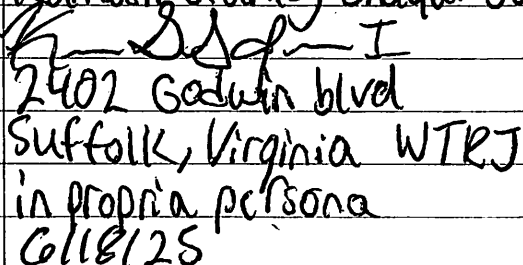 2402 Godwin blvd
Suffolk, Virginia WTRJ
in propria persona
6/18/25